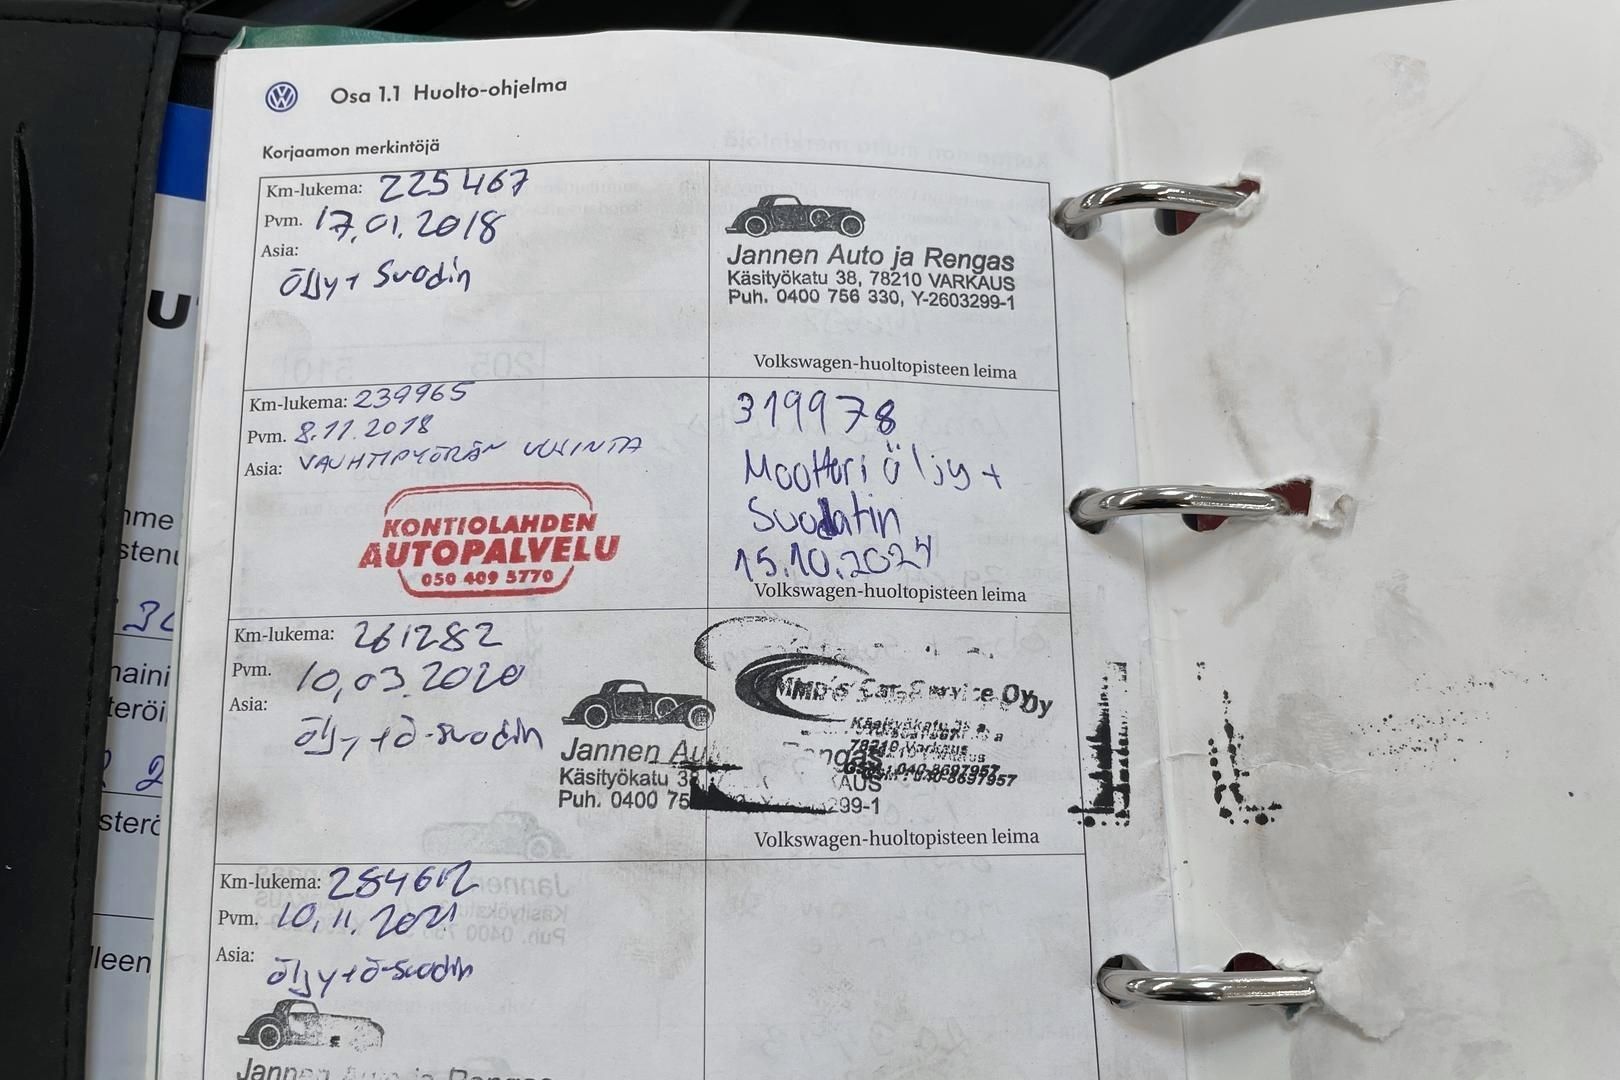 Osa 1.1 Huolto-ohjelma
Korjaamon merkintöjä
Km-lukema: 225467
Pvm. 17.01.2018
Asia:
Öljy + Suodin
Jannen Auto ja Rengas
Käsityökatu 38, 78210 VARKAUS
Puh. 0400 756 330, Y-2603299-1
Volkswagen-huoltopisteen leima
Km-lukema: 239965
Pvm. 8.11.2018
Asia: VAUHTIPYÖRÄN UUSINTA
KONTIOLAHDEN
AUTOPALVELU
050 409 5770
319978
Moottori öljy +
Suodatin
15.10.2024
Volkswagen-huoltopisteen leima
Km-lukema: 261282
Pvm. 10,03.2020
Asia:
öljy + ö-suodin
Jannen Au ngas
Käsityökatu 38 KAUS
Puh. 0400 75 299-1
MMD's Car Service Oy
Käsityökatu
78210 Varkaus
040-8697957
Volkswagen-huoltopisteen leima
Km-lukema: 284612
Pvm. 10.11.2021
Asia:
öljy + ö-suodin
Jannen Auto ja Rengas
hme
stenu
30
naini
teröi
2 2
sterö
lleen